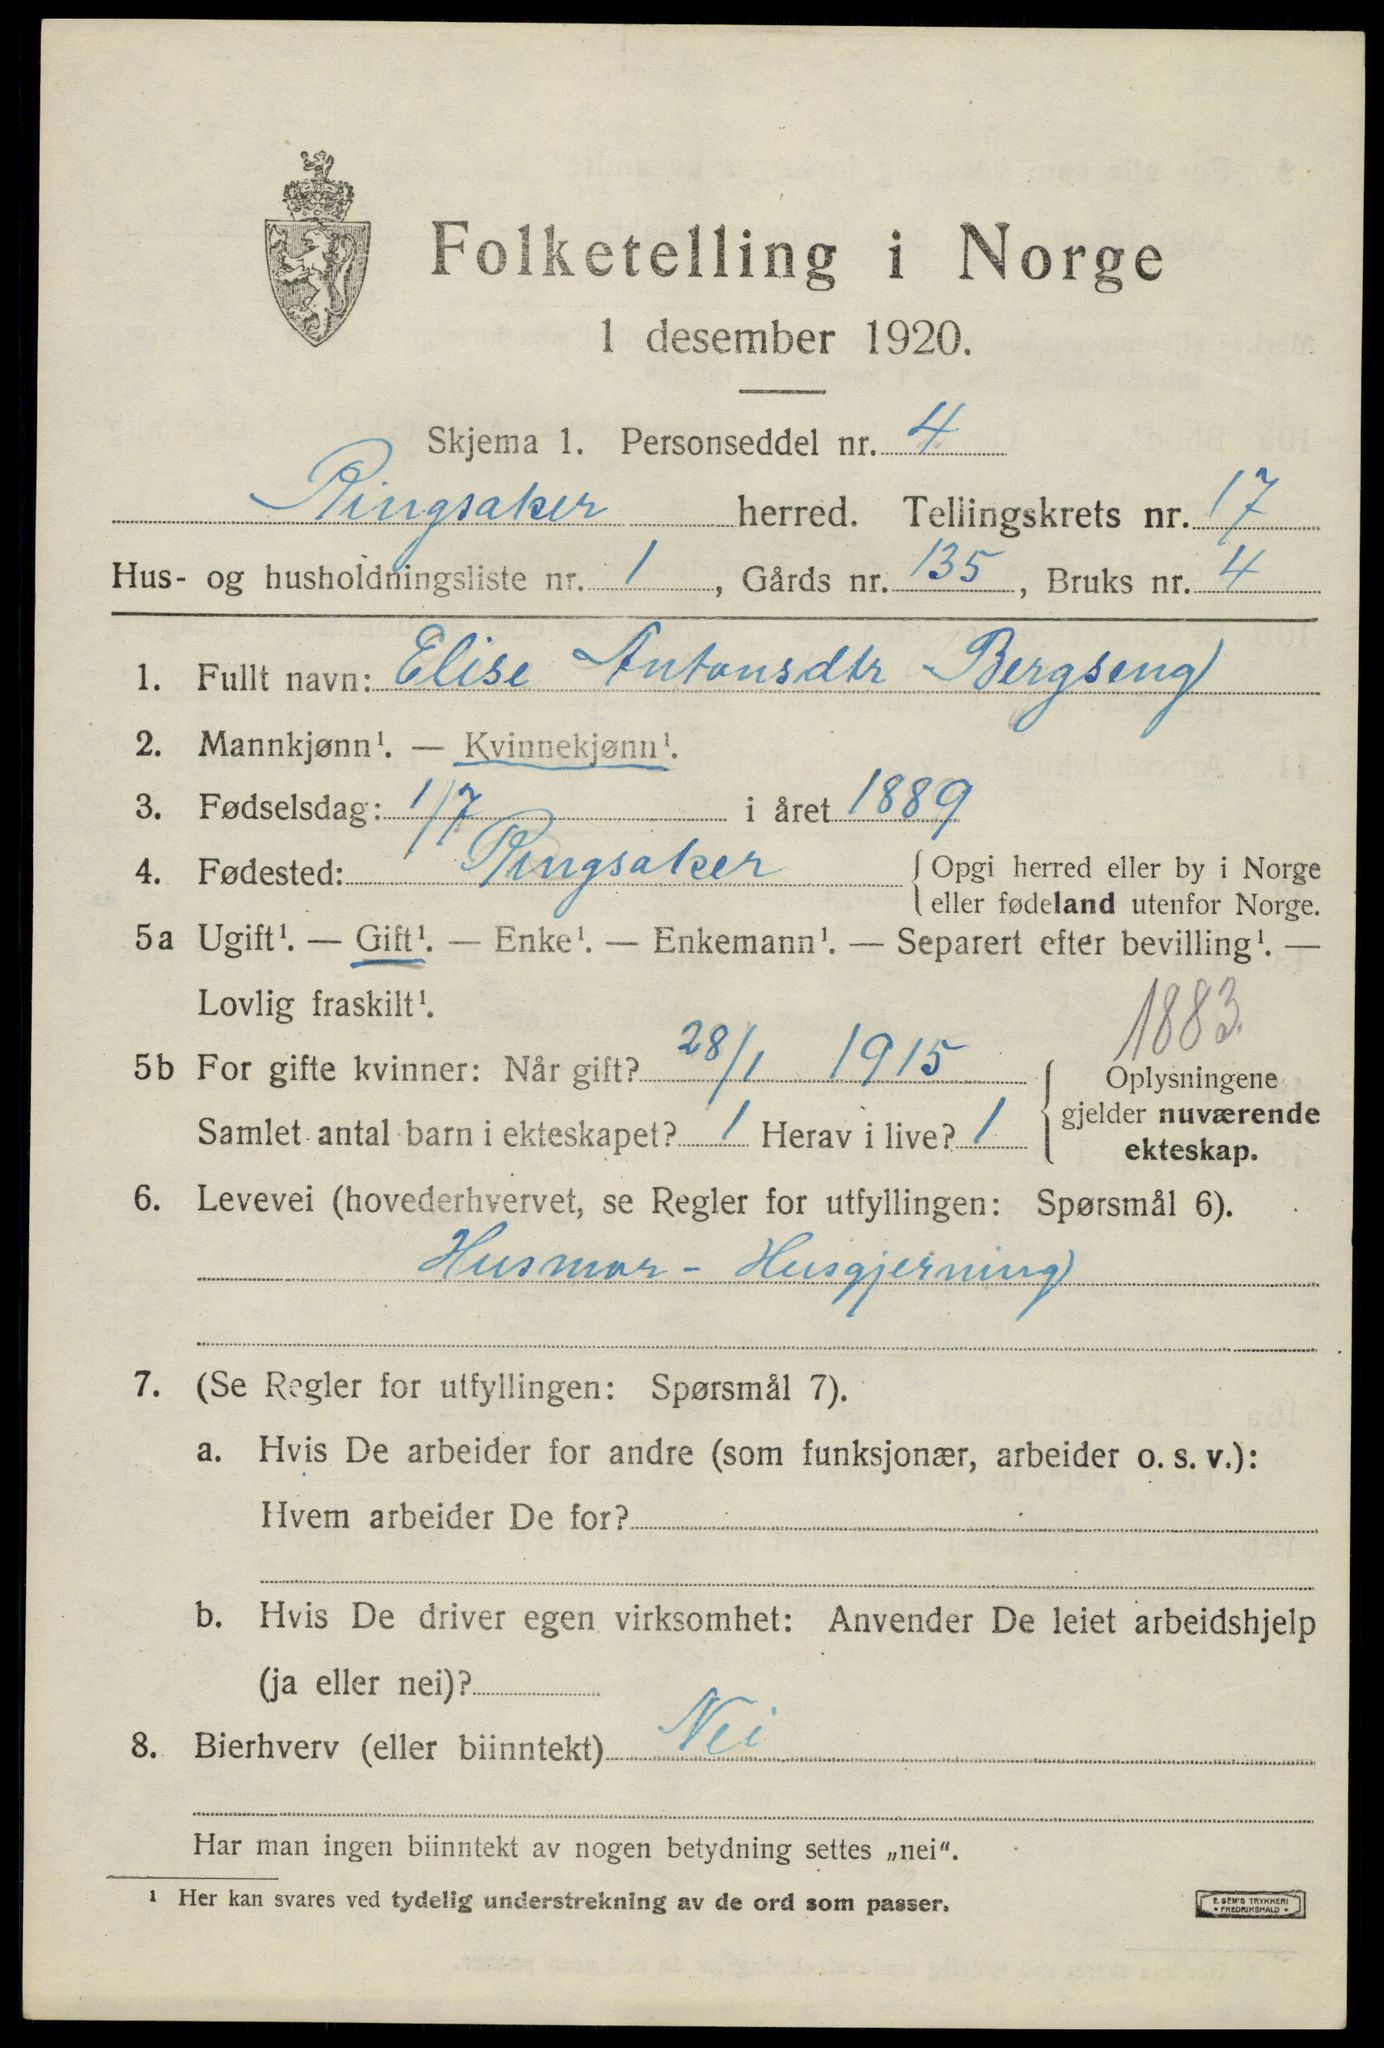 Folketelling i Norge
1 desember 1920.
Skjema 1. Personseddel nr. 4
Ringsaker herred. Tellingskrets nr. 17
Hus- og husholdningsliste nr. 1, Gårds nr. 135, Bruks nr. 4
1. Fullt navn: Elise Antonsdtr Bergseng
2. Mannkjønn¹. — Kvinnekjønn¹.
3. Fødselsdag: 1/7 i året 1889
4. Fødested: Ringsaker { Opgi herred eller by i Norge
eller fødeland utenfor Norge.
5a Ugift¹. — Gift¹. — Enke¹. — Enkemann¹. — Separert efter bevilling¹. —
Lovlig fraskilt¹.
1883.
5b For gifte kvinner: Når gift? 28/1 1915
Oplysningene
gjelder nuværende
ekteskap.
Samlet antal barn i ekteskapet? 1 Herav i live? 1
6. Levevei (hovederhvervet, se Regler for utfyllingen: Spørsmål 6).
Husmor - Husgjerning
7. (Se Regler for utfyllingen: Spørsmål 7).
a. Hvis De arbeider for andre (som funksjonær, arbeider o. s. v.):
Hvem arbeider De for?
b. Hvis De driver egen virksomhet: Anvender De leiet arbeidshjelp
(ja eller nei)?
8. Bierhverv (eller biinntekt) Nei
Har man ingen biinntekt av nogen betydning settes „nei“.
¹ Her kan svares ved tydelig understrekning av de ord som passer.
E. SEM'S TRYKKERI
• FREDRIKSHALD •